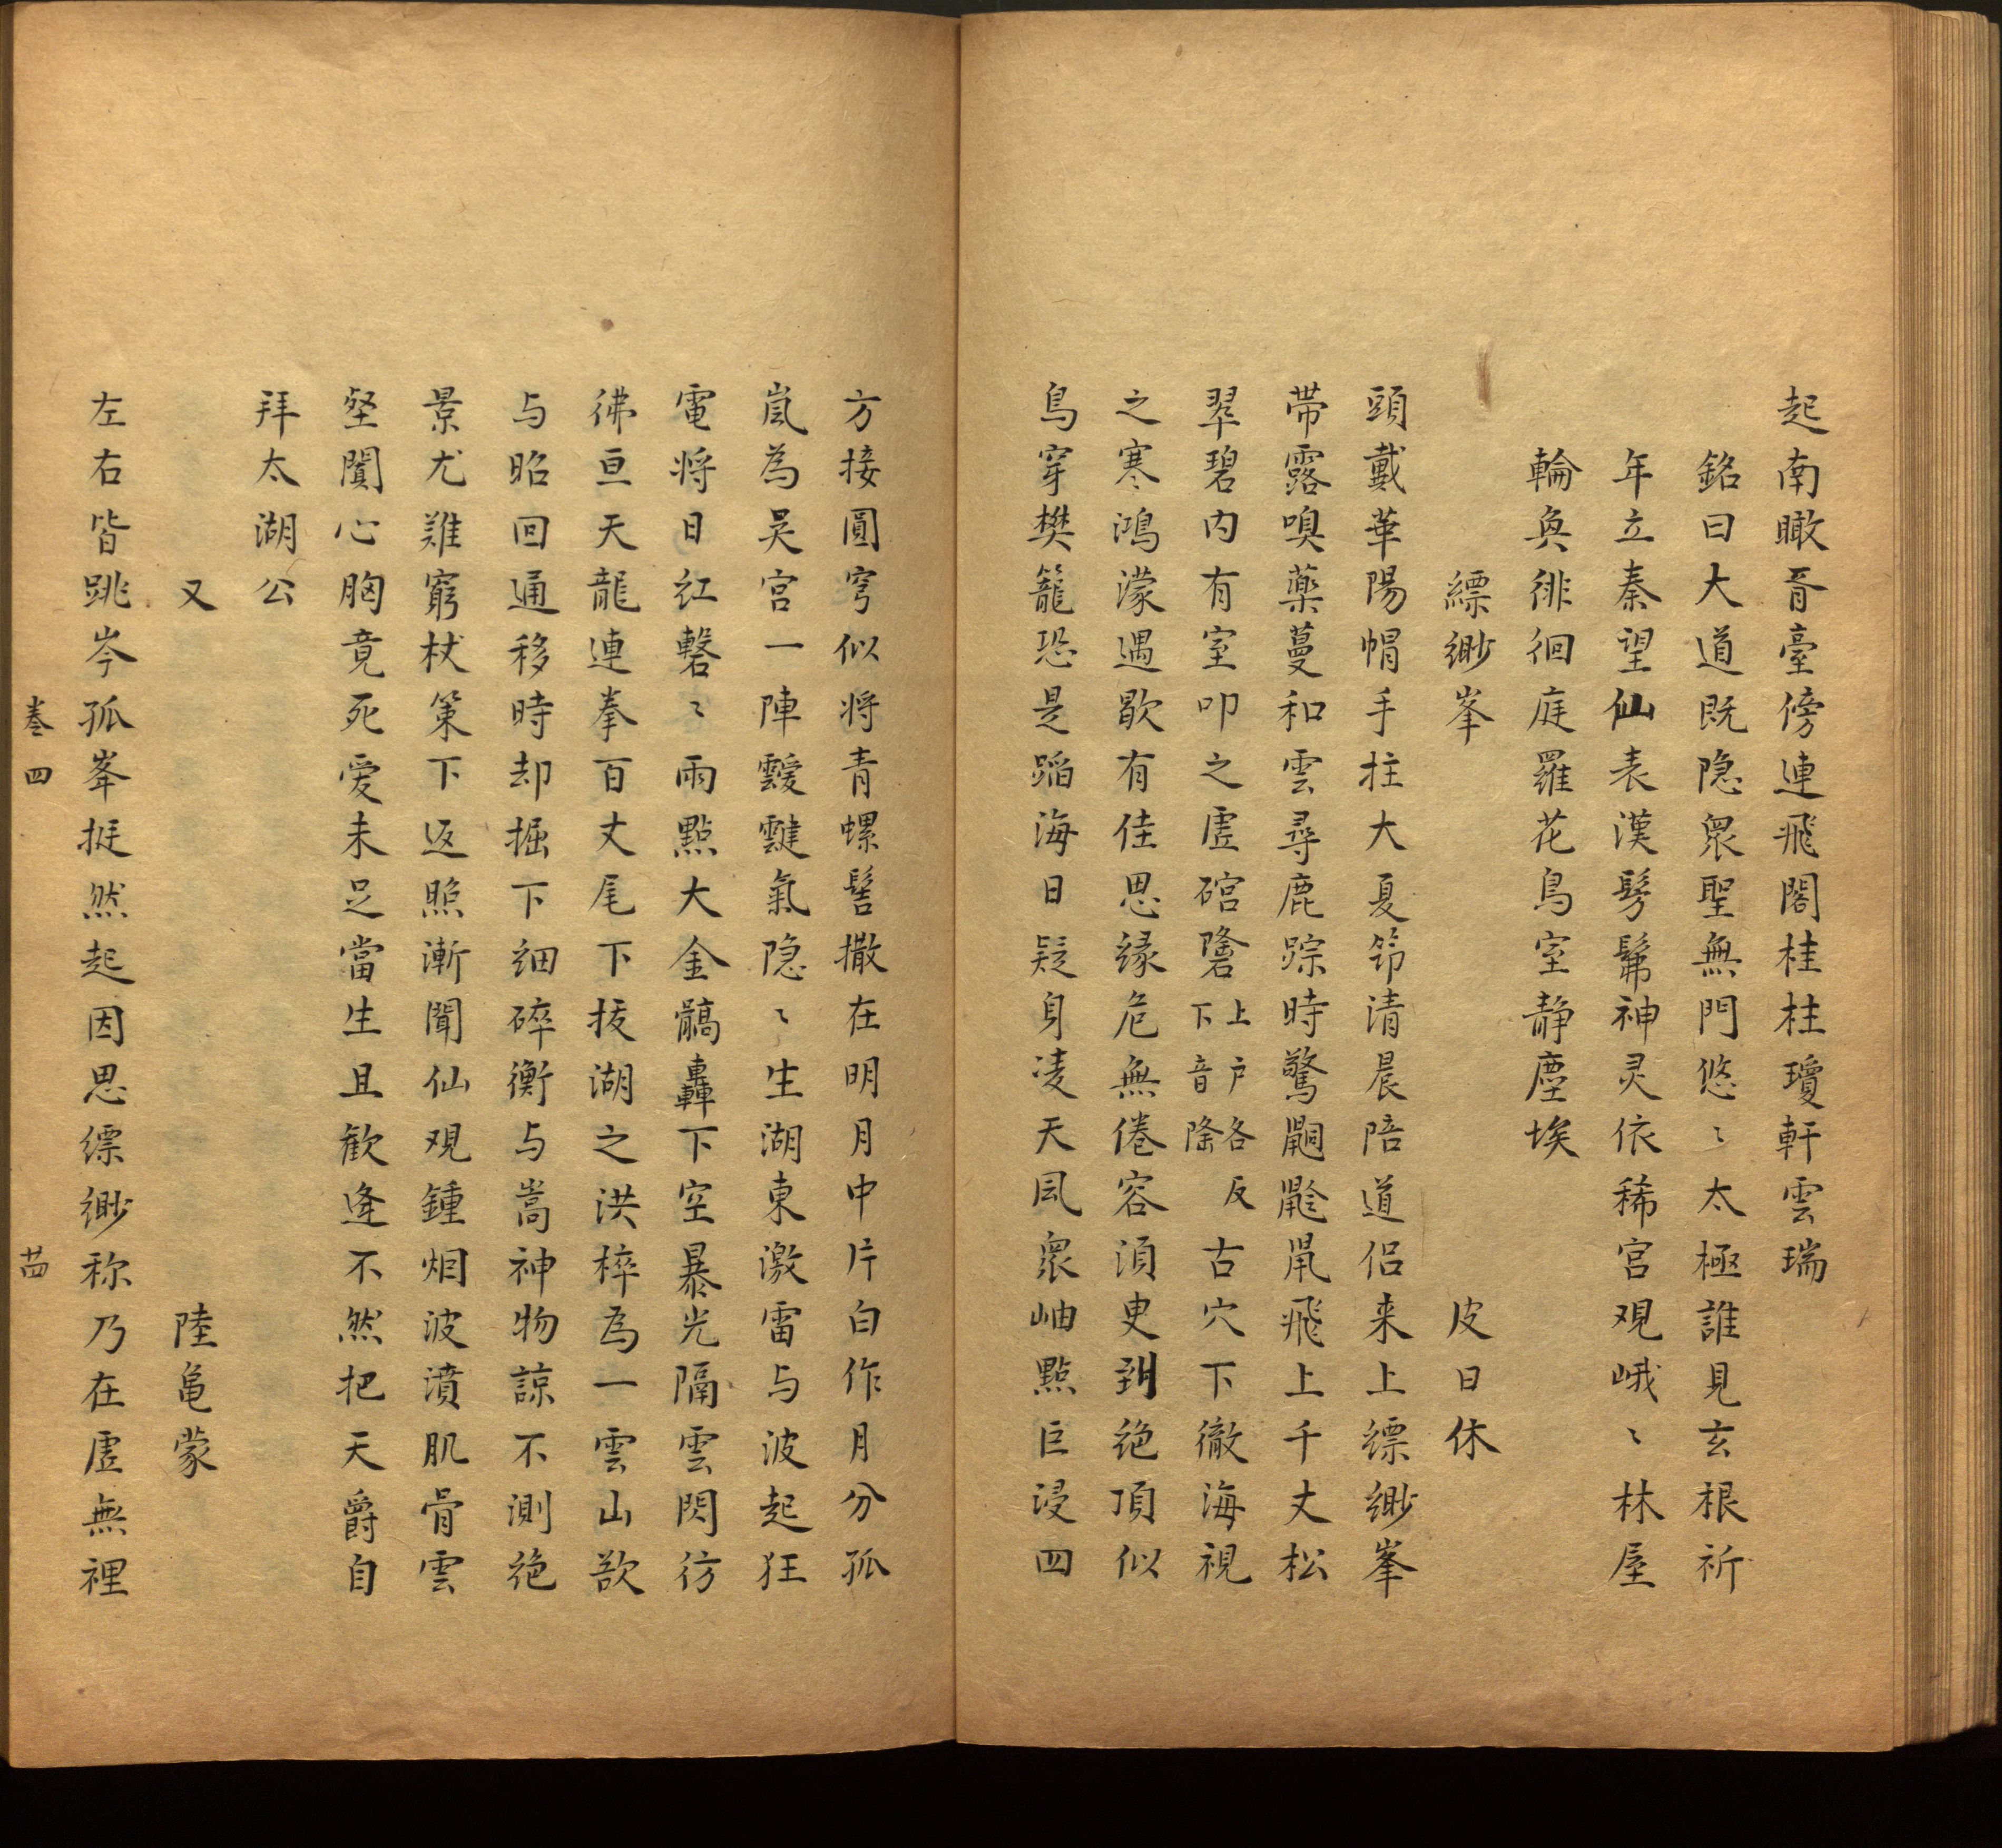 起南瞰胥臺傍連飛閣桂柱瓊軒雲瑞
銘曰大道既隐衆聖無門悠〻太極誰見玄根祈
年立秦望仙表漢髣髴神灵依稀宫观峨〻林屋
輪奐徘徊庭羅花鳥室静塵埃
縹緲峯 皮日休
頭戴華陽帽手拄大夏筇清晨陪道侣来上縹緲峯
帶露嗅藥蔓和雲尋鹿踪時驚鼯鼠飛上千丈松
翠碧内有室叩之虚碹䃶上户各反下音隆古穴下徹海視
之寒鴻濛遇歇有佳思缘危無倦容湏臾到絶頂似
鳥穿樊籠恐是蹈海日疑身凌天風衆岫點巨浸四
方接圓穹似将青螺髻撒在明月中片白作月分孤
嵐為吴宫一陣靉靆氣隐〻生湖東激雷与波起狂
電将日红礊〻雨點大金髇轟下空暴光隔雲閃彷
彿亘天龍連拳百丈尾下拔湖之洪椊為一雲山欲
与昭回通移時却掘下细碎衡与嵩神物諒不測絶
景尤難窮杖策下返照漸聞仙观鍾烟波濆肌骨雲
壑闐心胸竟死爱未足當生且歡逢不然把天爵自
拜太湖公
又 陸亀蒙
左右皆跳岑孤峯挺然起因思縹緲称乃在虚無裡
卷四 廿四